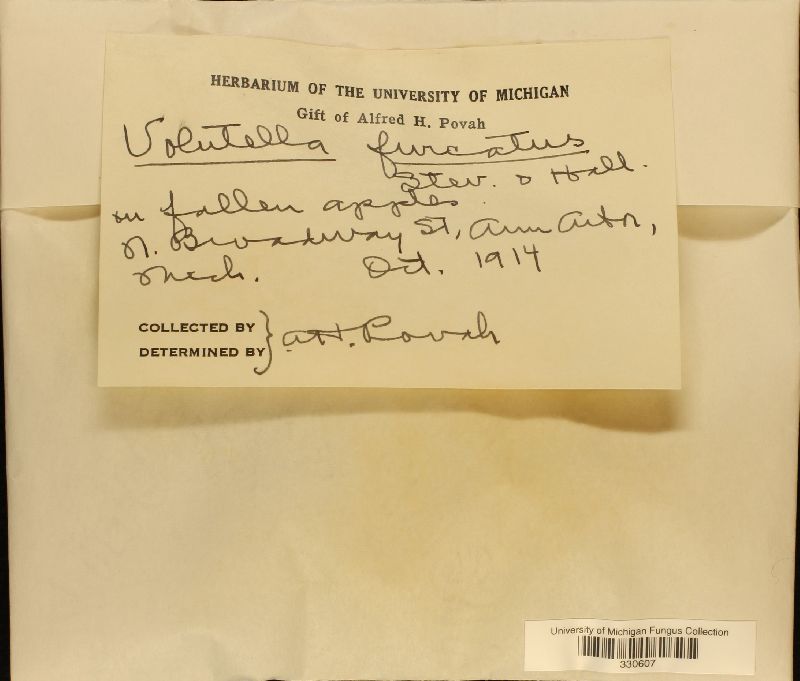 HERBARIUM OF THE UNIVERSITY OF MICHIGAN
Gift of Alfred H. Povah
Volutella furcatus
Stev. & Hall.
on fallen apples
N. Broadway St, Ann Arbor,
Mich. Oct. 1914
COLLECTED BY
DETERMINED BY } A.H. Povah
University of Michigan Fungus Collection
330607